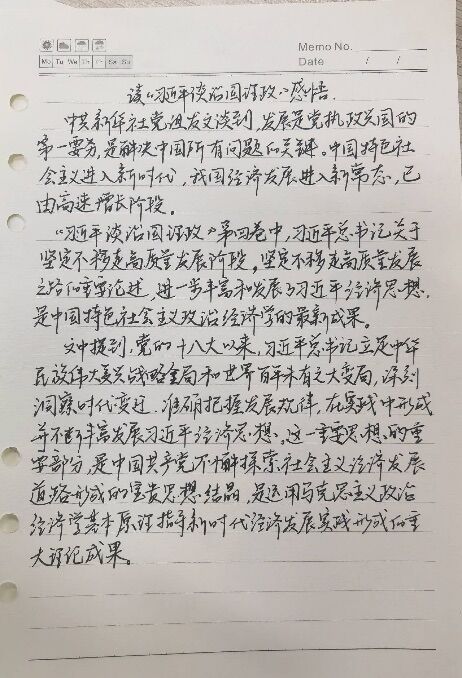 Memo No.
Mo Tu We Th Fr Sa Su
Date / /
读《习近平谈治国理政》感悟.
中共新华社党组发文谈到,发展是党执政兴国的
第一要务,是解决中国所有问题的关键。中国特色社
会主义进入新时代,我国经济发展进入新常态,已
由高速增长阶段。
《习近平谈治国理政》第四卷中,习近平总书记关于
坚定不移走高质量发展阶段。坚定不移走高质量发展
之路的重要论述,进一步丰富和发展了习近平经济思想,
是中国特色社会主义政治经济学的最新成果。
文中提到,党的十八大以来,习近平总书记立足中华
民族伟大复兴战略全局和世界百年未有之大变局,深刻
洞察时代变迁,准确把握发展规律,在实践中形成
并不断丰富发展习近平经济思想。这一重要思想的重
要部分,是中国共产党不懈探索社会主义经济发展
道路形成的宝贵思想结晶,是运用马克思主义政治
经济学基本原理指导新时代经济发展实践形成的重
大理论成果。